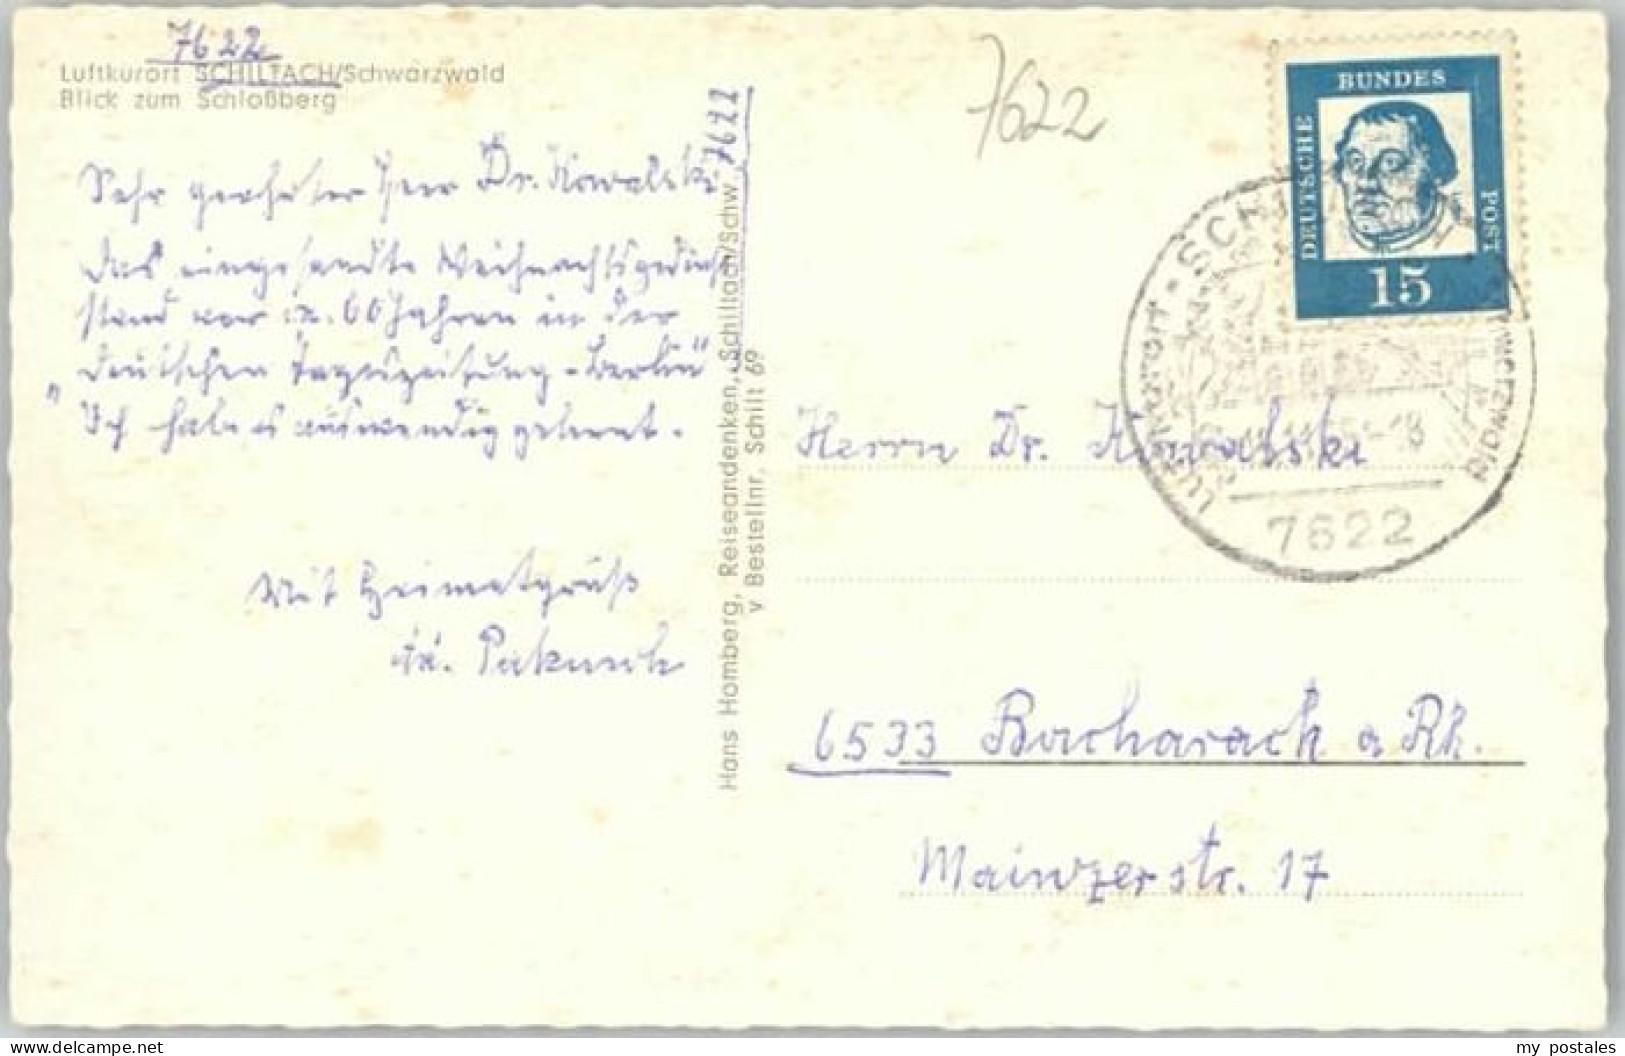 7622
Luftkurort SCHILTACH/Schwarzwald
Blick zum Schloßberg
Sehr geehrter Herr Dr. Kowalski,
das eingesandte Weihnachtsgedicht
stand vor ca. 60 Jahren in der
"Deutschen Tageszeitung - Berlin"
Ich habe es auswendig gelernt.
Mit Heimatgruß
7622
Hans Homberg, Reiseandenken, Schiltach/Schw
v Bestellnr. Schilt 69
7622
DEUTSCHE BUNDES POST
15
Luftkurort - SCHILTACH
Schwarzwald
-18
7622
Herrn Dr. Kowalski
6533 Bacharach a Rh.
Mainzerstr. 17
my postales
www.delcampe.net